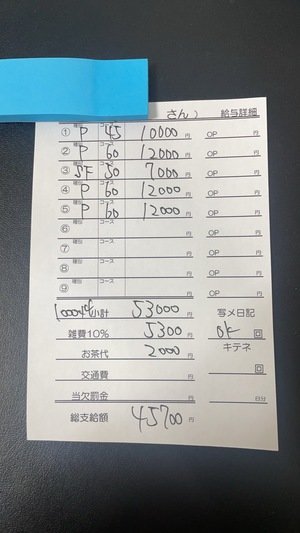 さん） 給与詳細
① 種別 P コース 45 10000 円 OP 円
② 種別 P コース 60 12000 円 OP 円
③ 種別 SF コース 50 7000 円 OP 円
④ 種別 P コース 60 12000 円 OP 円
⑤ 種別 P コース 60 12000 円 OP 円
⑥ 種別 コース 円 OP 円
⑦ 種別 コース 円 OP 円
⑧ 種別 コース 円 OP 円
⑨ 種別 コース 円 OP 円
小計 53000 円 写メ日記
雑費10% 5300 円 ok 回
お茶代 2000 円 キテネ
交通費 円 回
当欠罰金 円 日分
総支給額 45700 円